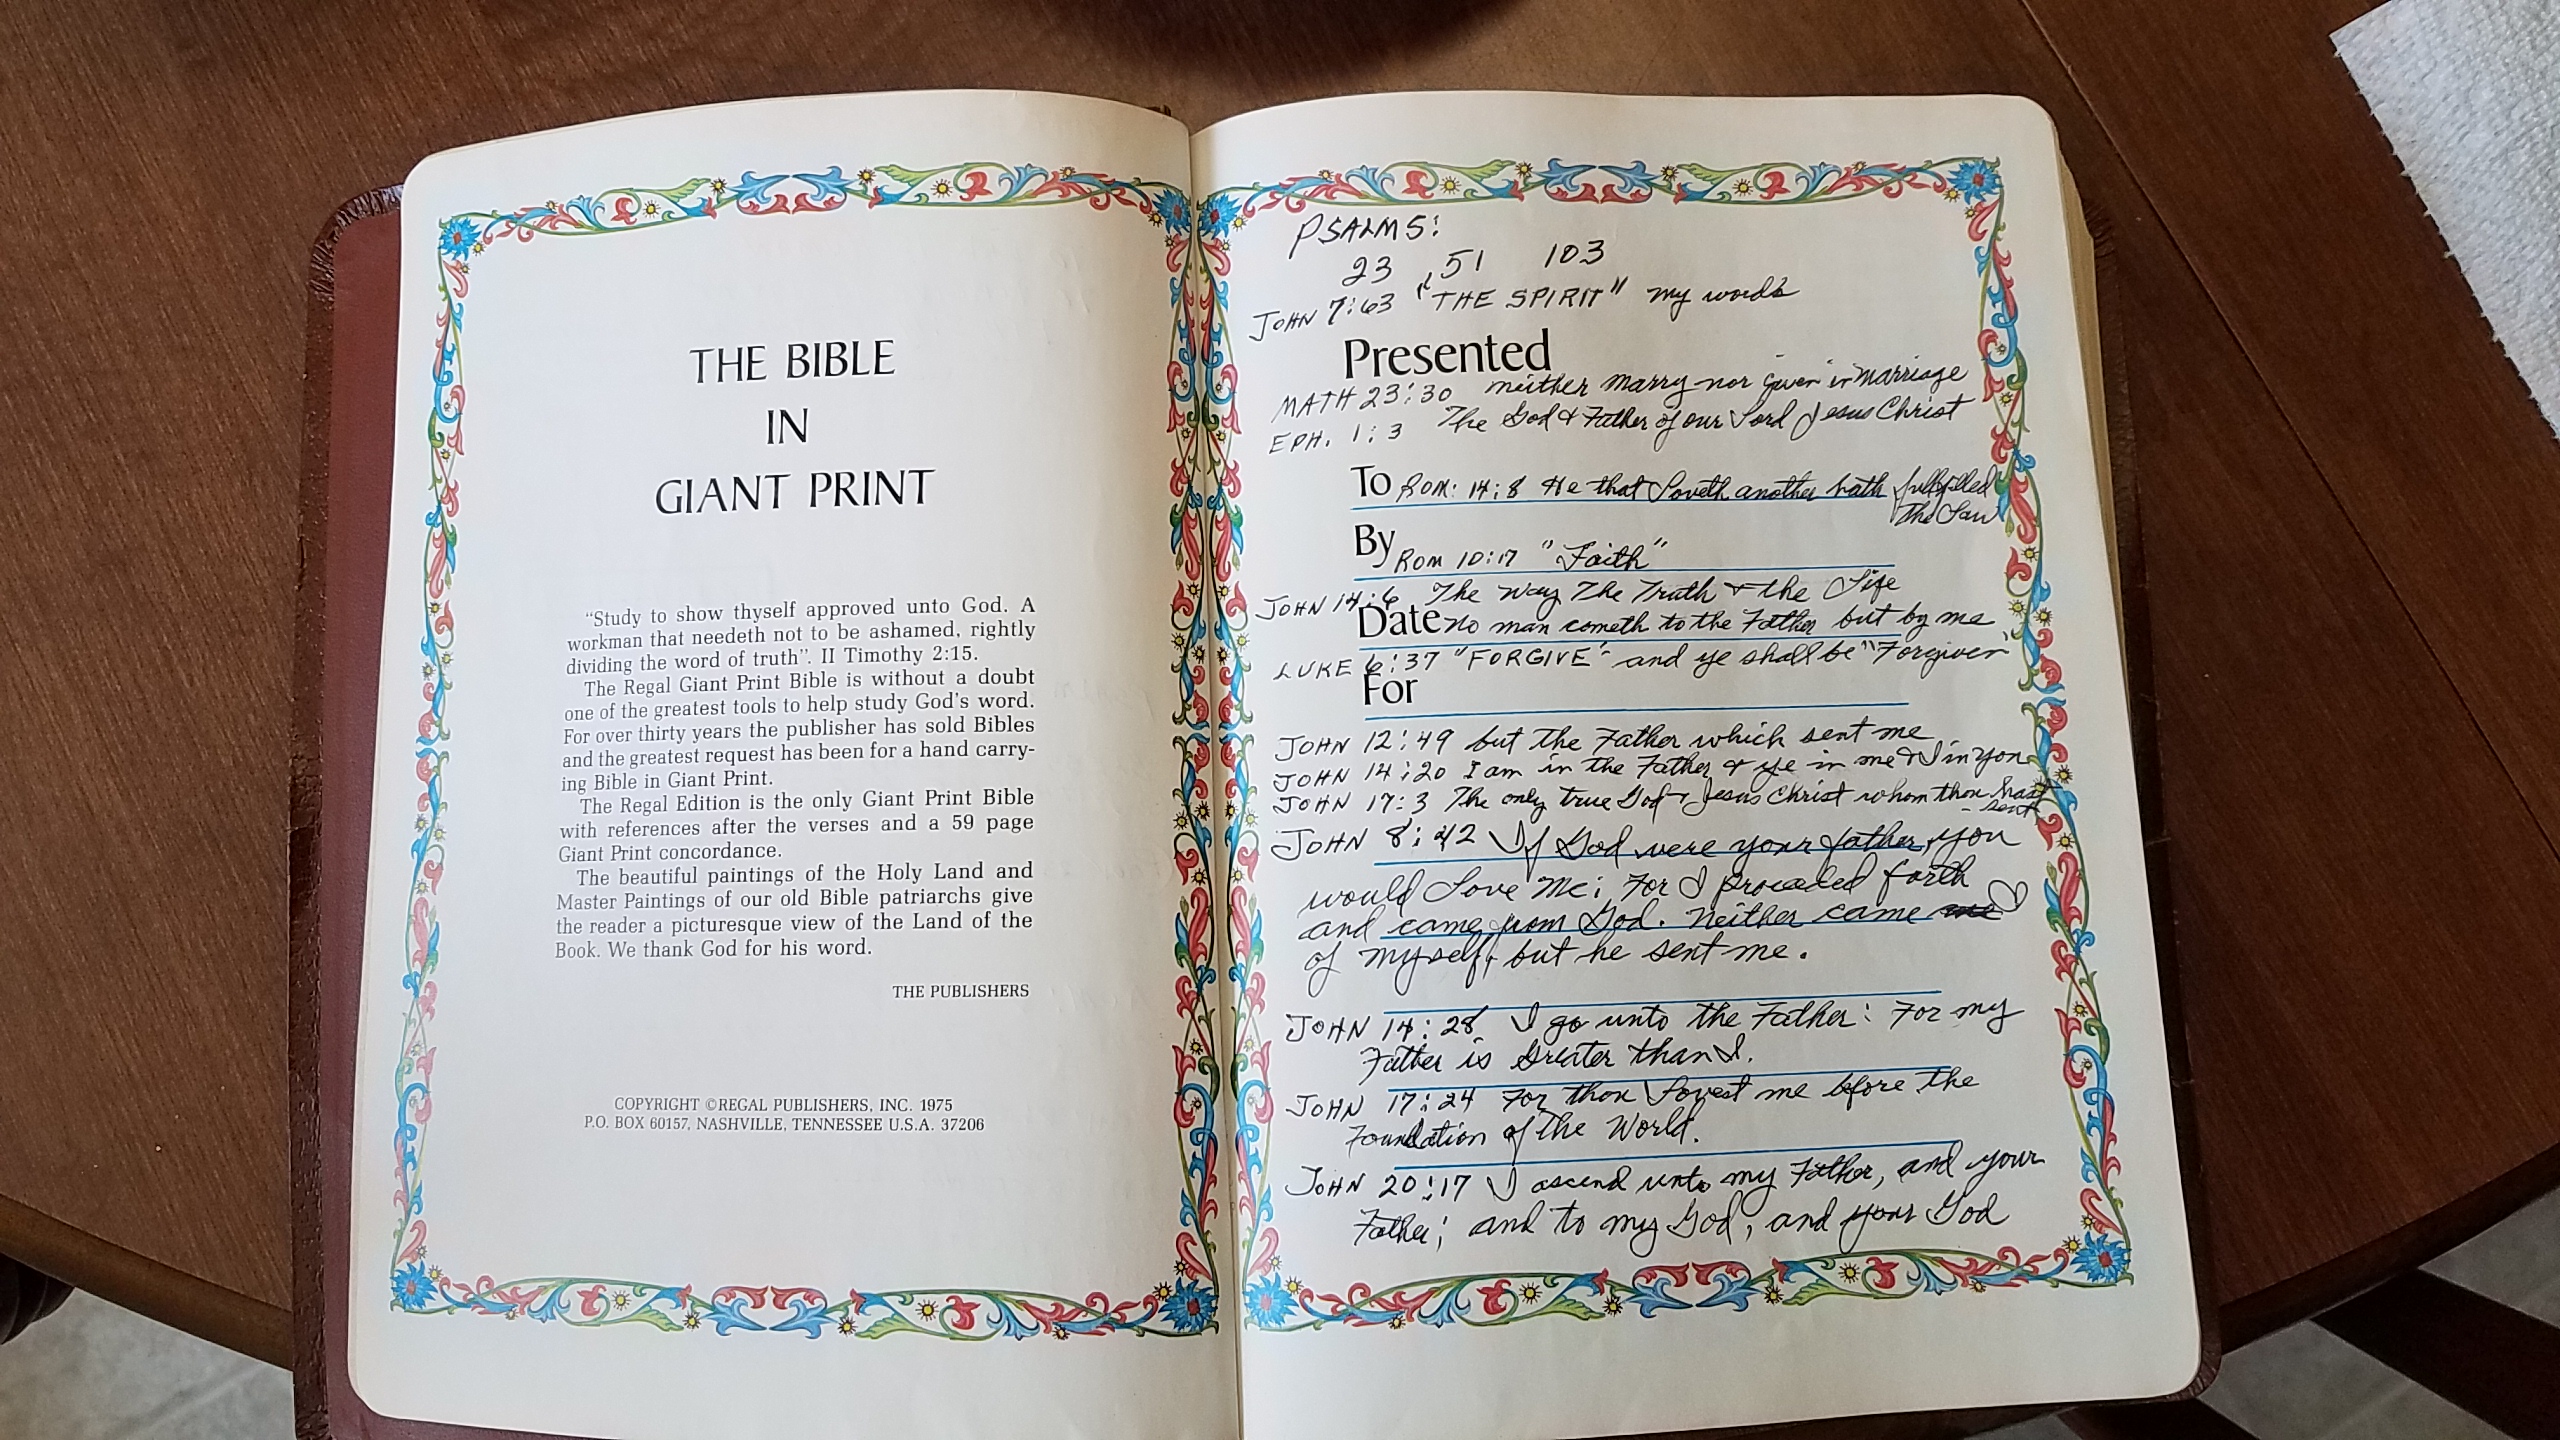 THE BIBLE
IN
GIANT PRINT
"Study to show thyself approved unto God. A
workman that needeth not to be ashamed, rightly
dividing the word of truth". II Timothy 2:15.
The Regal Giant Print Bible is without a doubt
one of the greatest tools to help study God's word.
For over thirty years the publisher has sold Bibles
and the greatest request has been for a hand carry-
ing Bible in Giant Print.
The Regal Edition is the only Giant Print Bible
with references after the verses and a 59 page
Giant Print concordance.
The beautiful paintings of the Holy Land and
Master Paintings of our old Bible patriarchs give
the reader a picturesque view of the Land of the
Book. We thank God for his word.
THE PUBLISHERS
COPYRIGHT ©REGAL PUBLISHERS, INC. 1975
P.O. BOX 60157, NASHVILLE, TENNESSEE U.S.A. 37206
PSALMS:
23 51 103
JOHN 7:63 "THE SPIRIT" my words
Presented
MATH 23:30 neither marry nor given in marriage
EPH. 1:3 The God & Father of our Lord Jesus Christ
To Rom: 14:8 He that Loveth another hath fullfilled
the Law
By Rom 10:17 "Faith"
JOHN 14:6 The Way The Truth & the Life
Date No man cometh to the Father but by me
LUKE 6:37 "FORGIVE" and ye shall be "Forgiven"
For
JOHN 12:49 but the Father which sent me
JOHN 14:20 I am in the Father & ye in me & I in you
JOHN 17:3 The only true God & Jesus Christ whom thou hast
- sent
JOHN 8:42 If God were your father, you
would Love Me; For I proceded forth
and came from God. Neither came me I
of myself, but he sent me.
JOHN 14:28 I go unto the Father: For my
Father is Greater than I.
JOHN 17:24 For thou Lovest me before the
Foundation of the World.
JOHN 20:17 I ascend unto my Father, and your
Father; and to my God, and your God